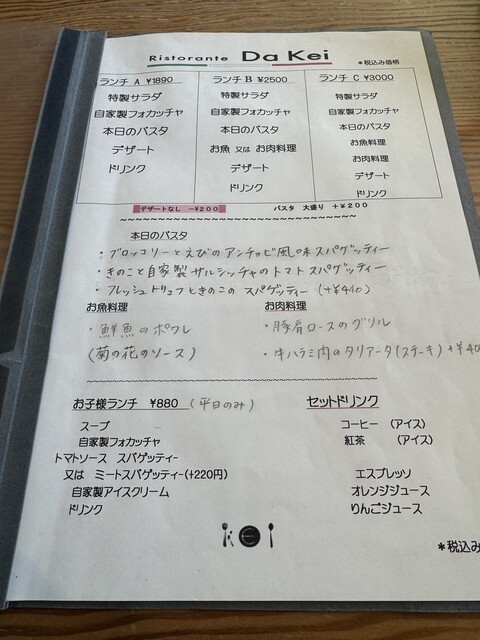 Ristorante Da Kei
*税込み価格
ランチ A ¥1890
特製サラダ
自家製フォカッチャ
本日のパスタ
デザート
ドリンク
ランチ B ¥2500
特製サラダ
自家製フォカッチャ
本日のパスタ
お魚 又は お肉料理
デザート
ドリンク
ランチ C ¥3000
特製サラダ
自家製フォカッチャ
本日のパスタ
お魚料理
お肉料理
デザート
ドリンク
デザートなし -¥200
パスタ 大盛り +¥200
本日のパスタ
・ブロッコリーとえびのアンチョビ風味スパゲッティー
・きのこと自家製サルシッチャのトマトスパゲッティー
・フレッシュトリュフときのこのスパゲッティー (+¥440)
お魚料理
・鮮魚のポワレ
(菊の花のソース)
お肉料理
・豚肩ロースのグリル
・牛ハラミ肉のタリアータ(ステーキ)+¥40
お子様ランチ ¥880 (平日のみ)
スープ
自家製フォカッチャ
トマトソース スパゲッティー
又は ミートスパゲッティー(+220円)
自家製アイスクリーム
ドリンク
セットドリンク
コーヒー (アイス)
紅茶 (アイス)
エスプレッソ
オレンジジュース
りんごジュース
*税込み